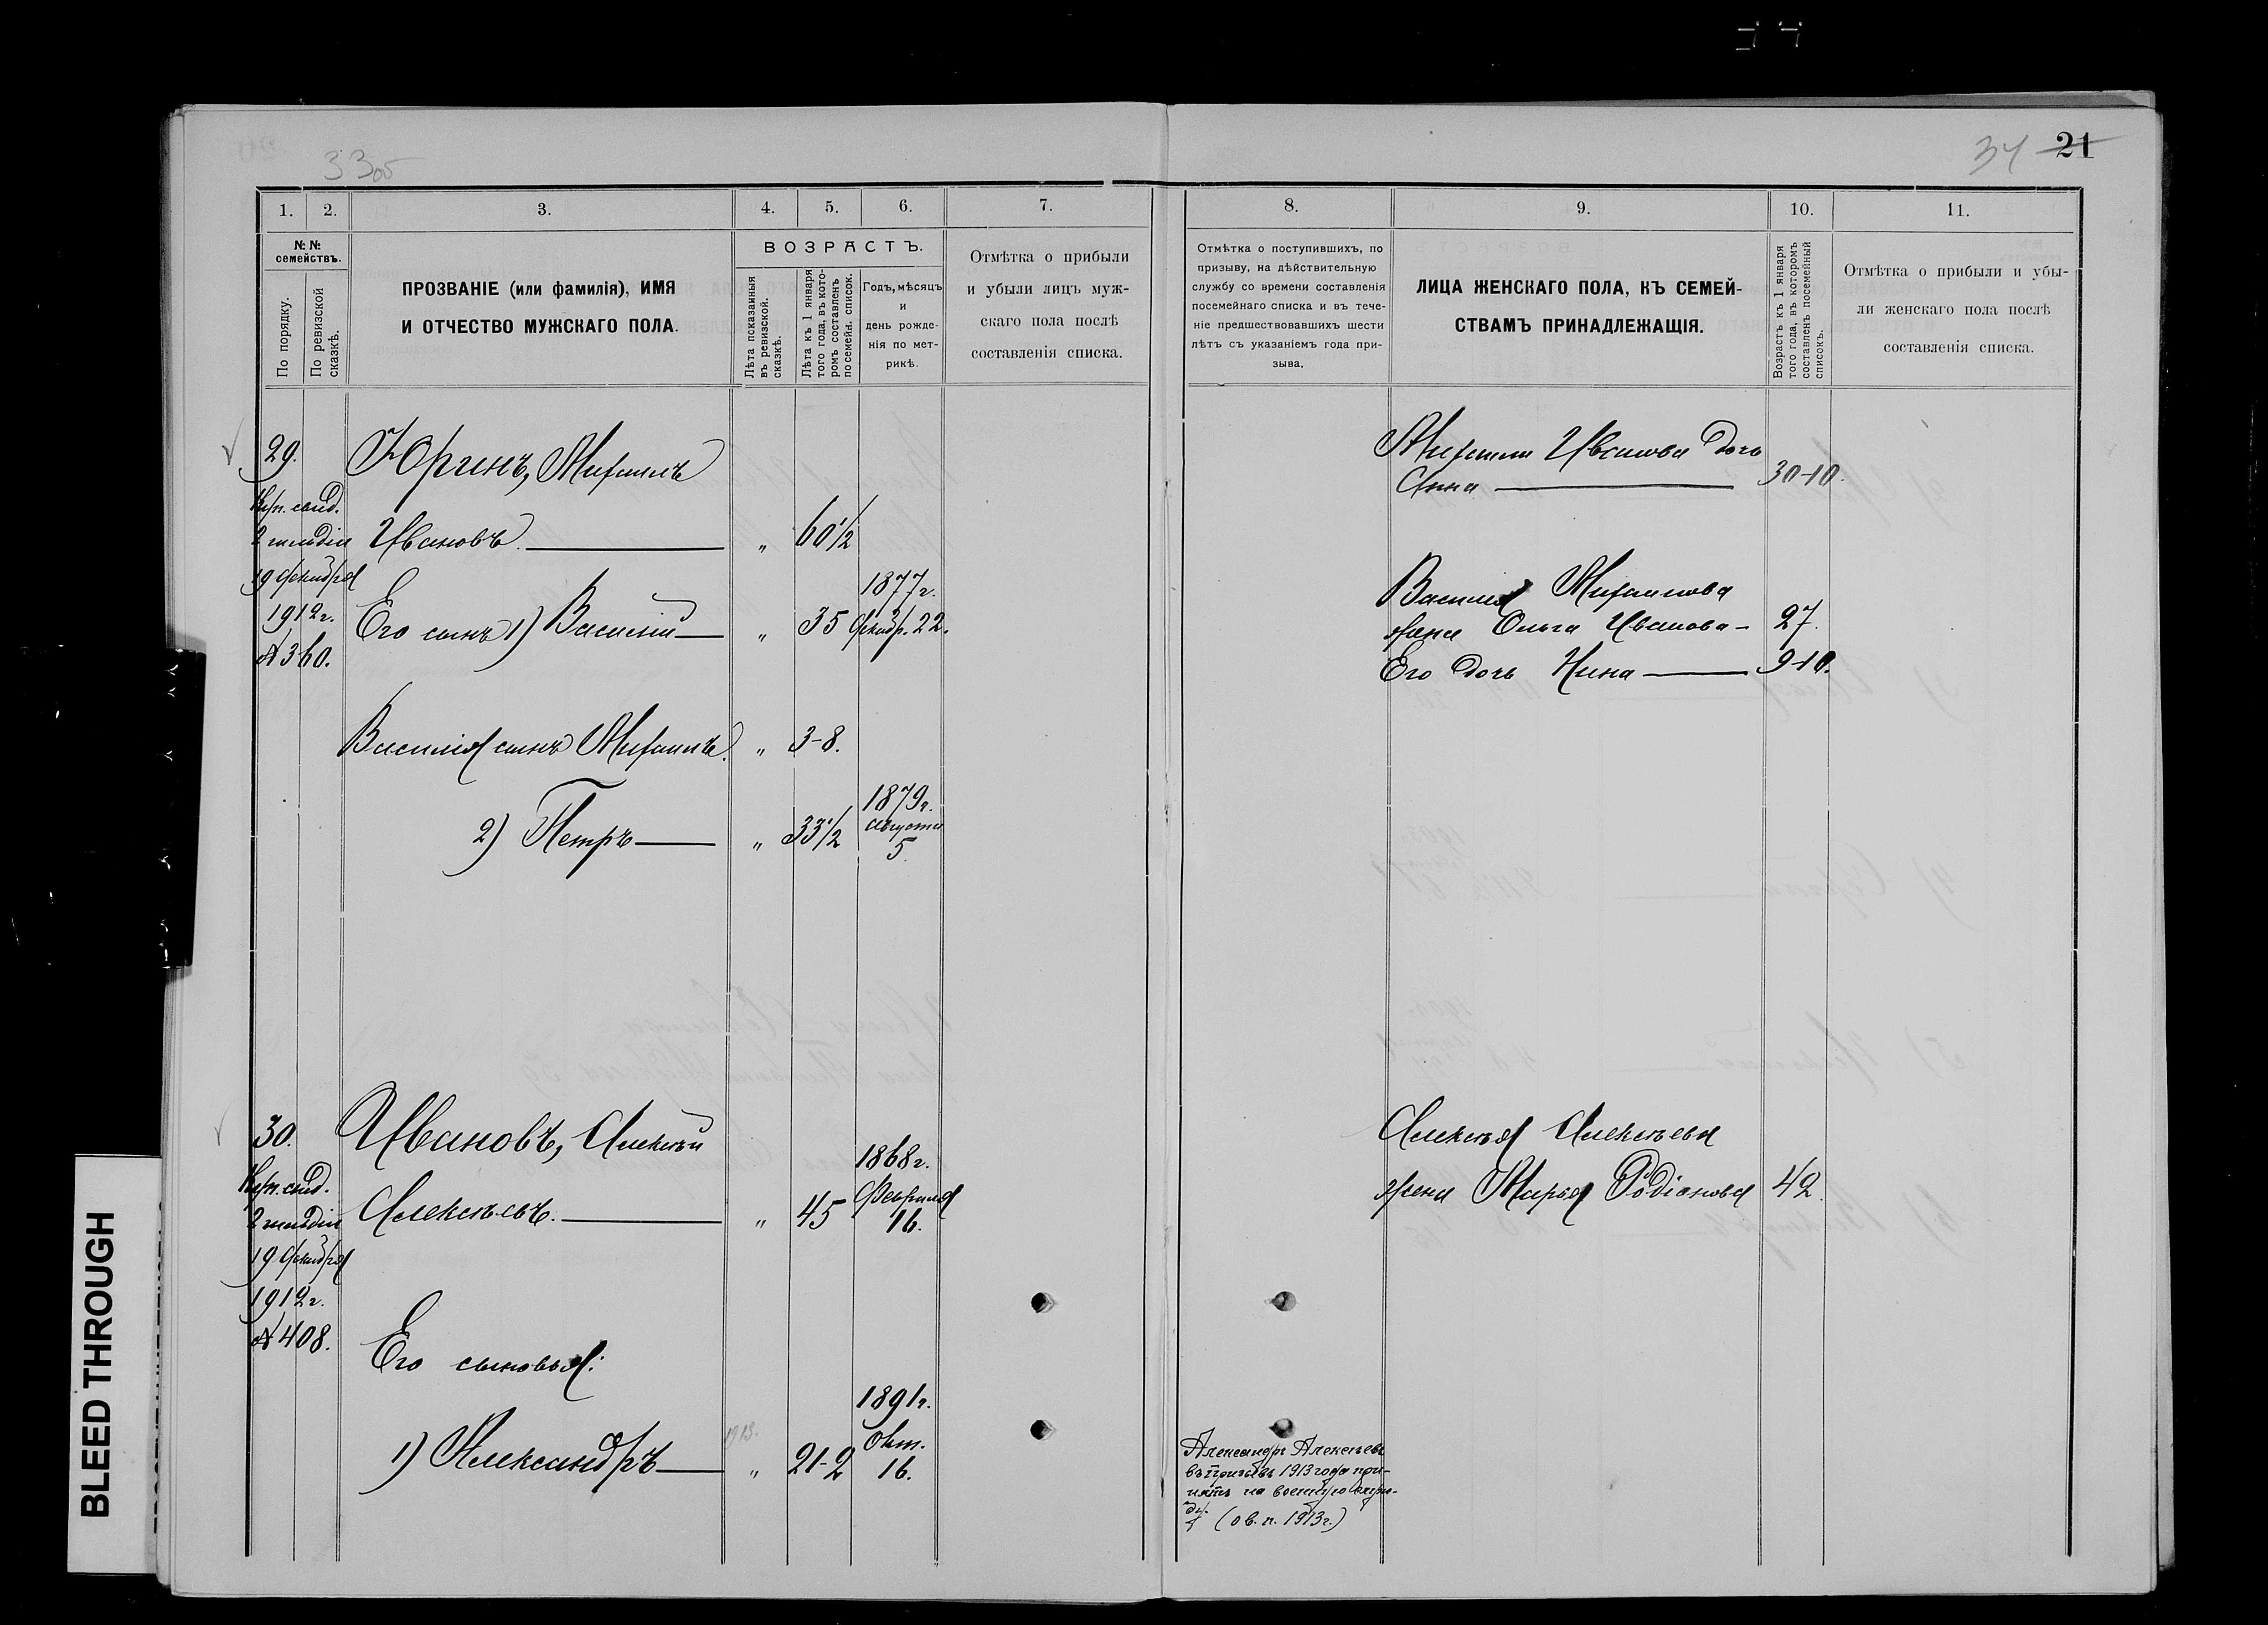 33об
34 21
1. 2. 3. 4. 5. 6. 7.
№ №
семействъ.
По порядку.
По ревизской
сказкѣ.
ПРОЗВАНІЕ (или фамилія), ИМЯ
И ОТЧЕСТВО МУЖСКАГО ПОЛА.
ВОЗРАСТЪ.
Лѣта показанныя
въ ревизской.
сказкѣ.
Лѣта къ 1 января
того года, въ кото-
ромъ составленъ
посемейн. список.
Годъ, мѣсяцъ
и
день рожде-
нія по мет-
рикѣ.
Отмѣтка о прибыли
и убыли лицъ муж-
скаго пола послѣ
составленія списка.
29.
Куп. свид.
2 гильдіи
19 Декабря
1912 г.
№ 360.
Юринъ, Михаилъ
Ивановъ. " 60 1/2
Его сынъ 1) Василій " 35 1877 г.
Декабр. 22.
Василія сынъ Михаилъ. " 3-8.
2) Петръ " 33 1/2 1879 г.
Августа
5.
30.
Куп. свид.
2 гильдіи
19 Декабря
1912 г.
№ 408.
Ивановъ, Алексѣй
Алексѣевъ. " 45 1868 г.
Февраля
16.
Его сыновья:
1) Александръ 1913. " 21-2 1891 г.
Окт.
16.
8. 9. 10. 11.
Отмѣтка о поступившихъ, по
призыву, на дѣйствительную
службу со времени составленія
посемейнаго списка и въ тече-
ніе предшествовавшихъ шести
лѣтъ съ указаніемъ года при-
зыва.
ЛИЦА ЖЕНСКАГО ПОЛА, КЪ СЕМЕЙ-
СТВАМЪ ПРИНАДЛЕЖАЩІЯ.
Возрастъ къ 1 января
того года, въ которомъ
составленъ посемейный
списокъ.
Отмѣтка о прибыли и убы-
ли женскаго пола послѣ
составленія списка.
Михаила Иванова дочь
Анна 30-10.
Василія Михаилова
жена Ольга Иванова - 27.
Его дочь Нина 9-10.
Алексѣя Алексѣева
жена Марья Родіонова 42.
Александръ Алексѣевъ
въ призывъ 1913 года при-
нятъ на военную служ-
(о в. п. 1913 г.)
BLEED THROUGH